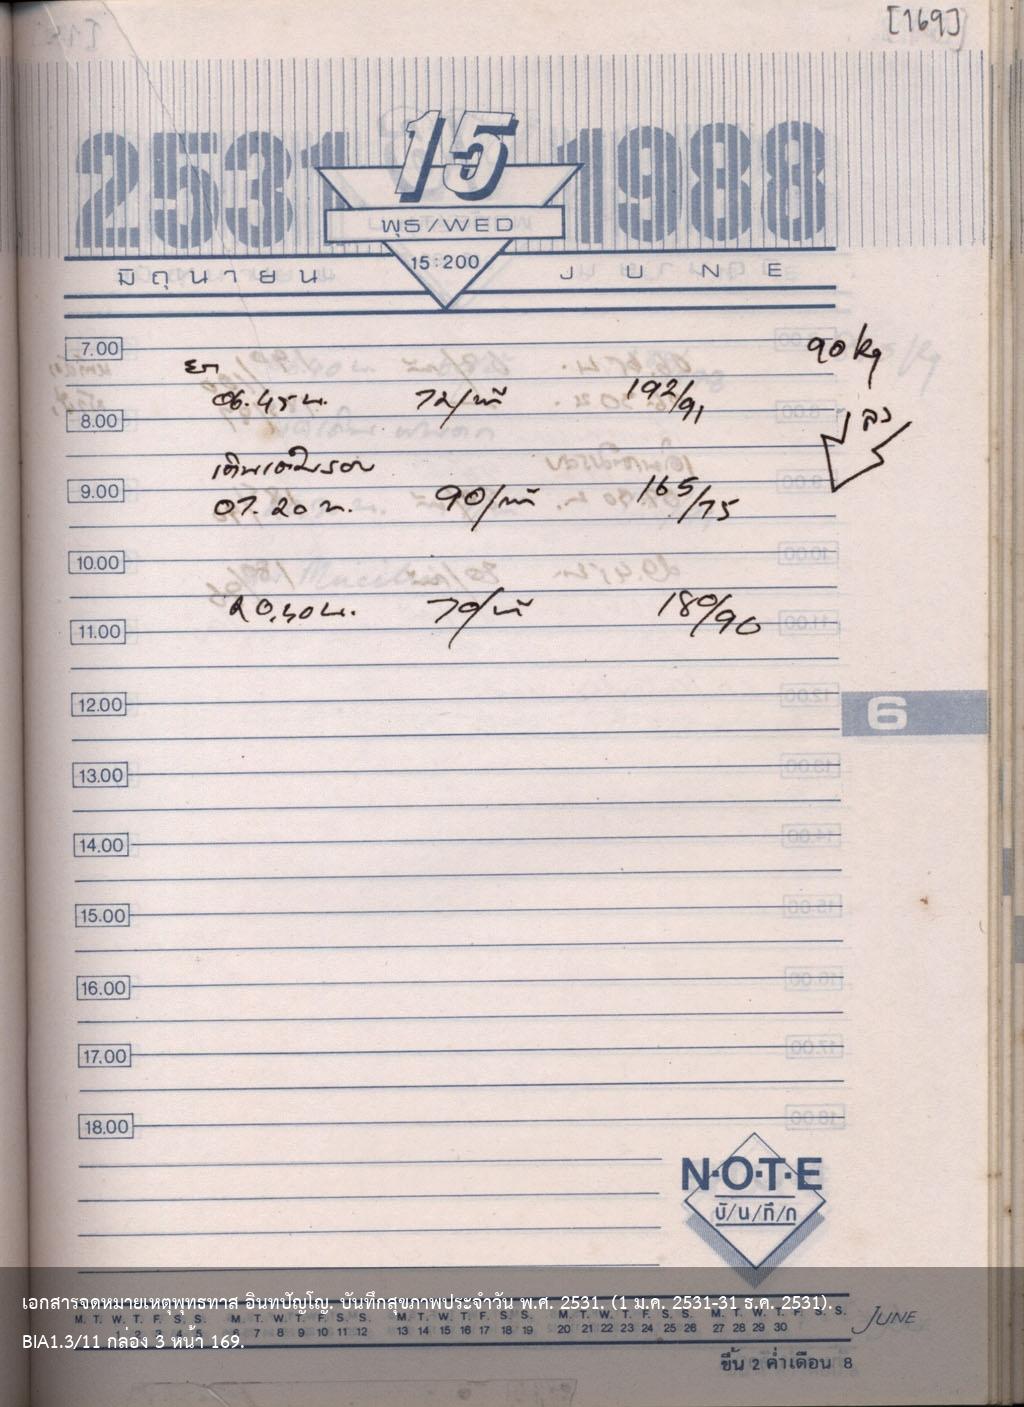 [169]
2531 15 1988
พุธ/WED
15:200
มิถุนายน JUNE
7.00
90 kg
06.45 น. 72/นาที 192/91
8.00
ลง
เดินเต็มรอบ
9.00
07.20 น. 90/นาที 165/75
10.00
20.40 น. 70/นาที 180/90
11.00
12.00
6
13.00
14.00
15.00
16.00
17.00
18.00
N·O·T·E
บั/น/ทึ/ก
เอกสารจดหมายเหตุพุทธทาส อินทปัญโญ. บันทึกสุขภาพประจำวัน พ.ศ. 2531. (1 ม.ค. 2531-31 ธ.ค. 2531).
M. T. W. T. F. S. S. M. T. W. T. F. S. S. M. T. W. T. F. S. S. M. T. W. T. F. S. S. M. T. W. T. F. S. S. JUNE
1 2 3 4 5 6 7 8 9 10 11 12 13 14 15 16 17 18 19 20 21 22 23 24 25 26 27 28 29 30
BIA1.3/11 กล่อง 3 หน้า 169.
ขึ้น 2 ค่ำเดือน 8